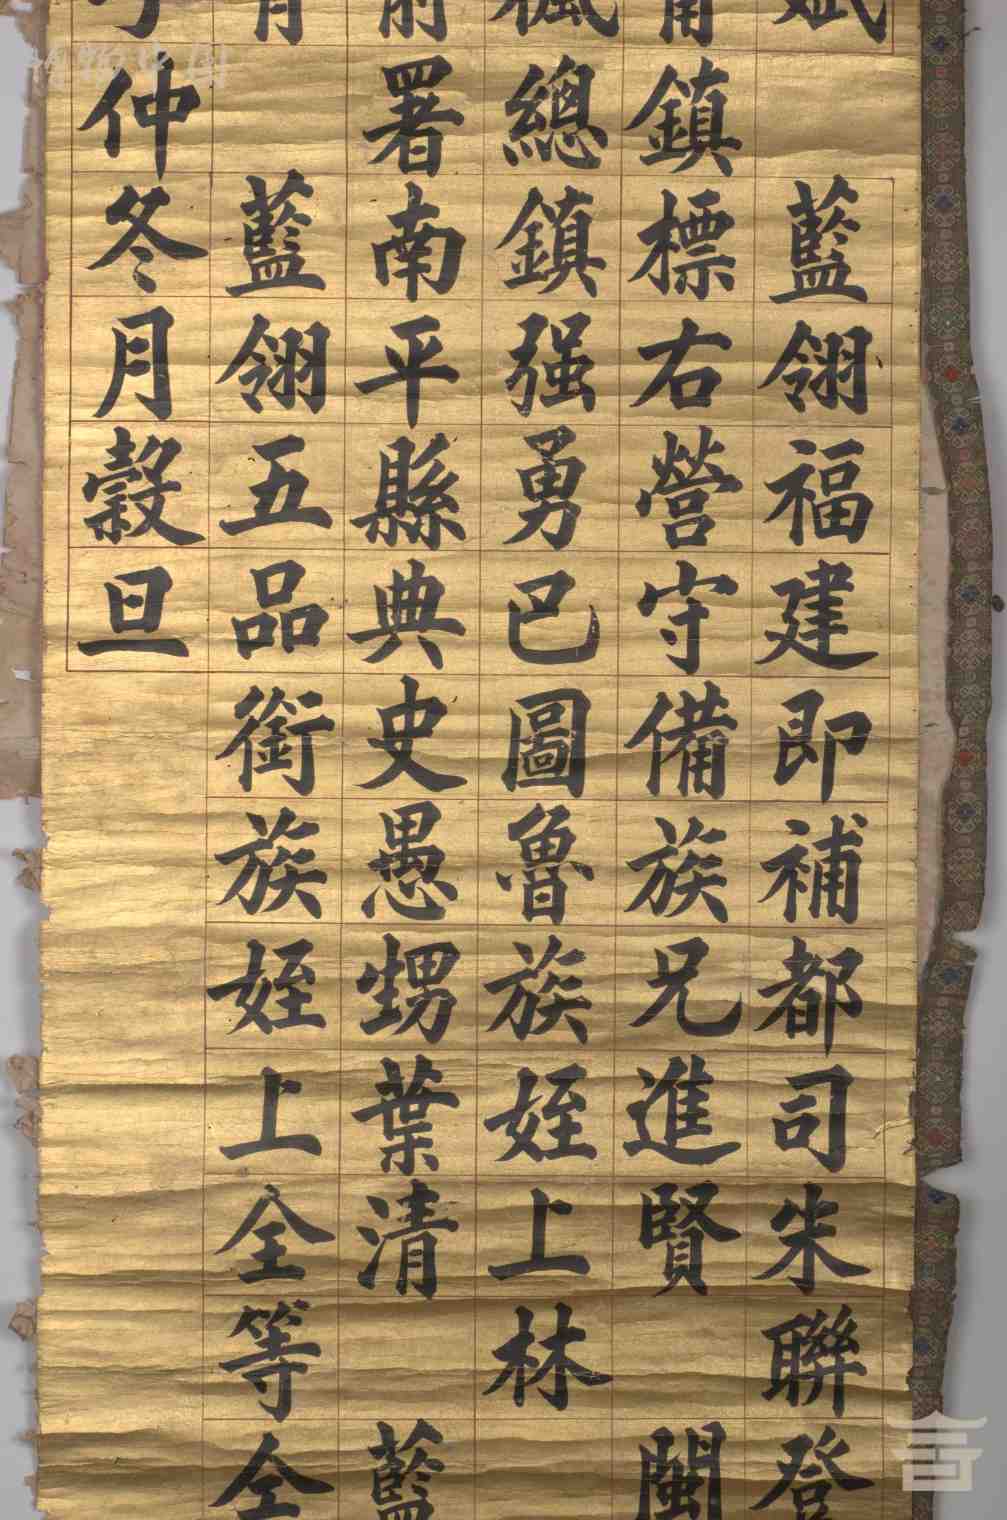 斌藍翎福建即補都司朱聯登
鎮標右營守備族兄進賢 閩
總鎮强勇巴圖魯族姪上林
前署南平縣典史愚甥葉清 藍
藍翎五品銜族姪上全等全
仲冬月穀旦